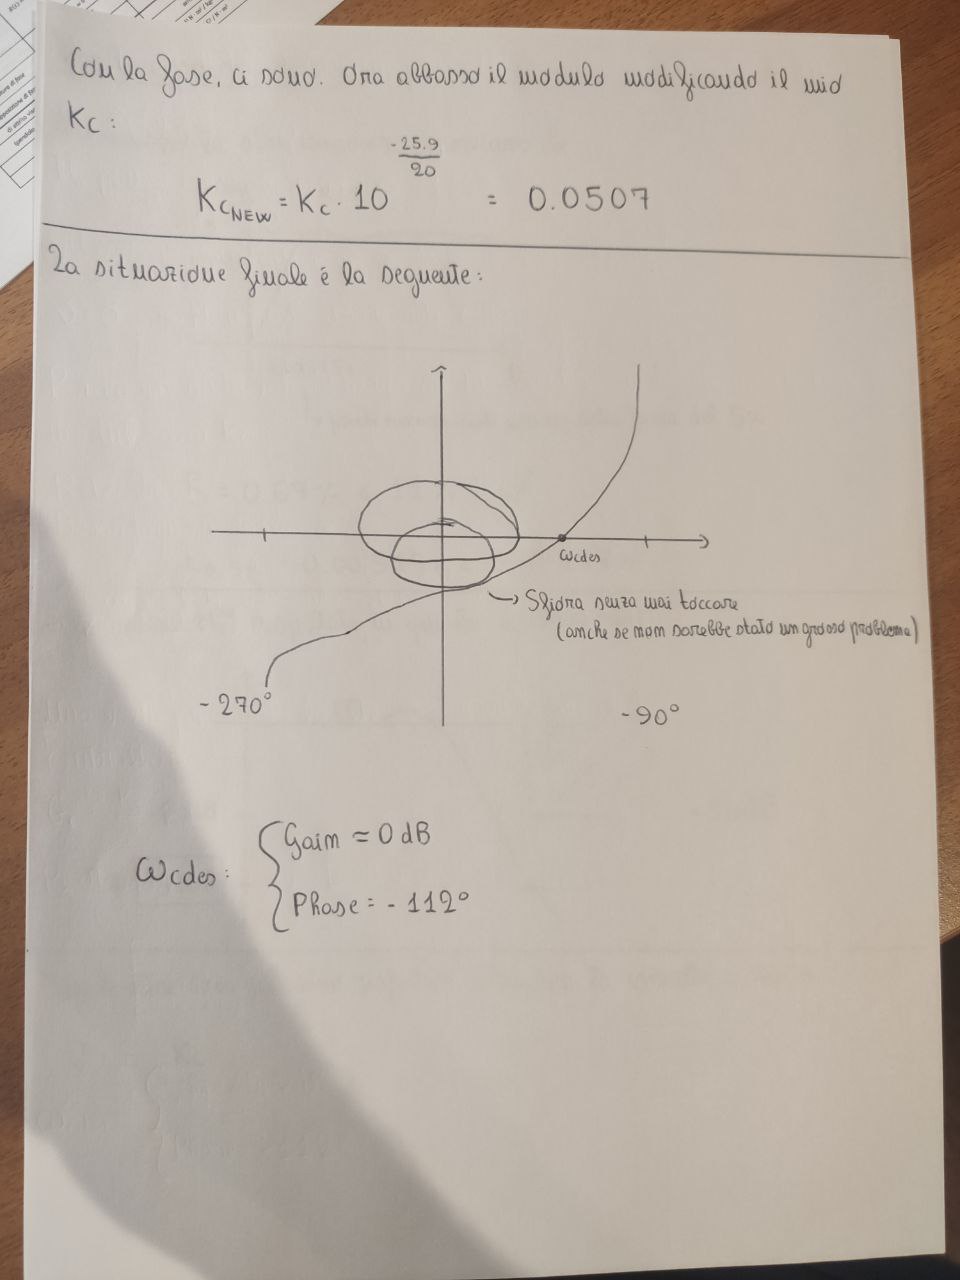 Con la fase, ci sono. Ora abbasso il modulo modificando il mio
Kc:
KcNEW = Kc · 10^(-25.9/20) = 0.0507
La situazione finale é la seguente:
ωcdes
Sfiora senza mai toccare
(anche se non sarebbe stato un grosso problema)
- 270°
- 90°
ωcdes: { Gain ≃ 0 dB
Phase = - 112°